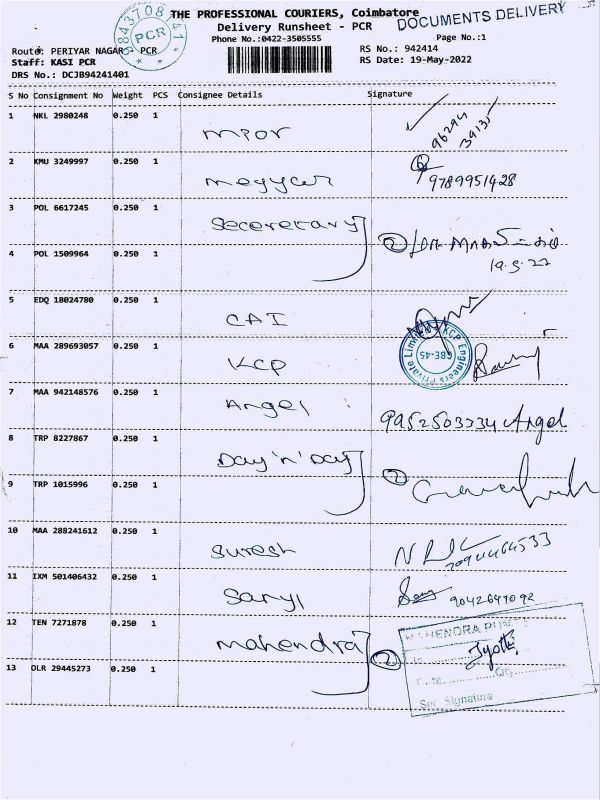 THE PROFESSIONAL COURIERS, Coimbatore
DOCUMENTS DELIVERY
Delivery Runsheet - PCR
Phone No.:0422-3505555
Page No.:1
PCR
Route: PERIYAR NAGAR - PCR
RS No.: 942414
Staff: KASI PCR
RS Date: 19-May-2022
DRS No.: DCJB94241401
S No Consignment No Weight PCS Consignee Details Signature
1 NKL 2980248 0.250 1
mpor
96294
39135
2 KMU 3249997 0.250 1
meyyar 9789951428
3 POL 6617245 0.250 1
Seceretary
2
4 POL 1509964 0.250 1
19.5.22
5 EDQ 18024780 0.250 1
CAI
6 MAA 289693057 0.250 1
KCP
KCP Engineers Private Limited
CBE-45
7 MAA 942148576 0.250 1
Angel 9952503334 Angel
8 TRP 8227867 0.250 1
Day 'n' Day
2
9 TRP 1015996 0.250 1
10 MAA 288241612 0.250 1
Suresh
11 IXM 501406432 0.250 1
Saryi
12 TEN 7271878 0.250 1
mahendra
2
MAHENDRA
Jyothi
City
Signature
13 OLR 29445273 0.250 1